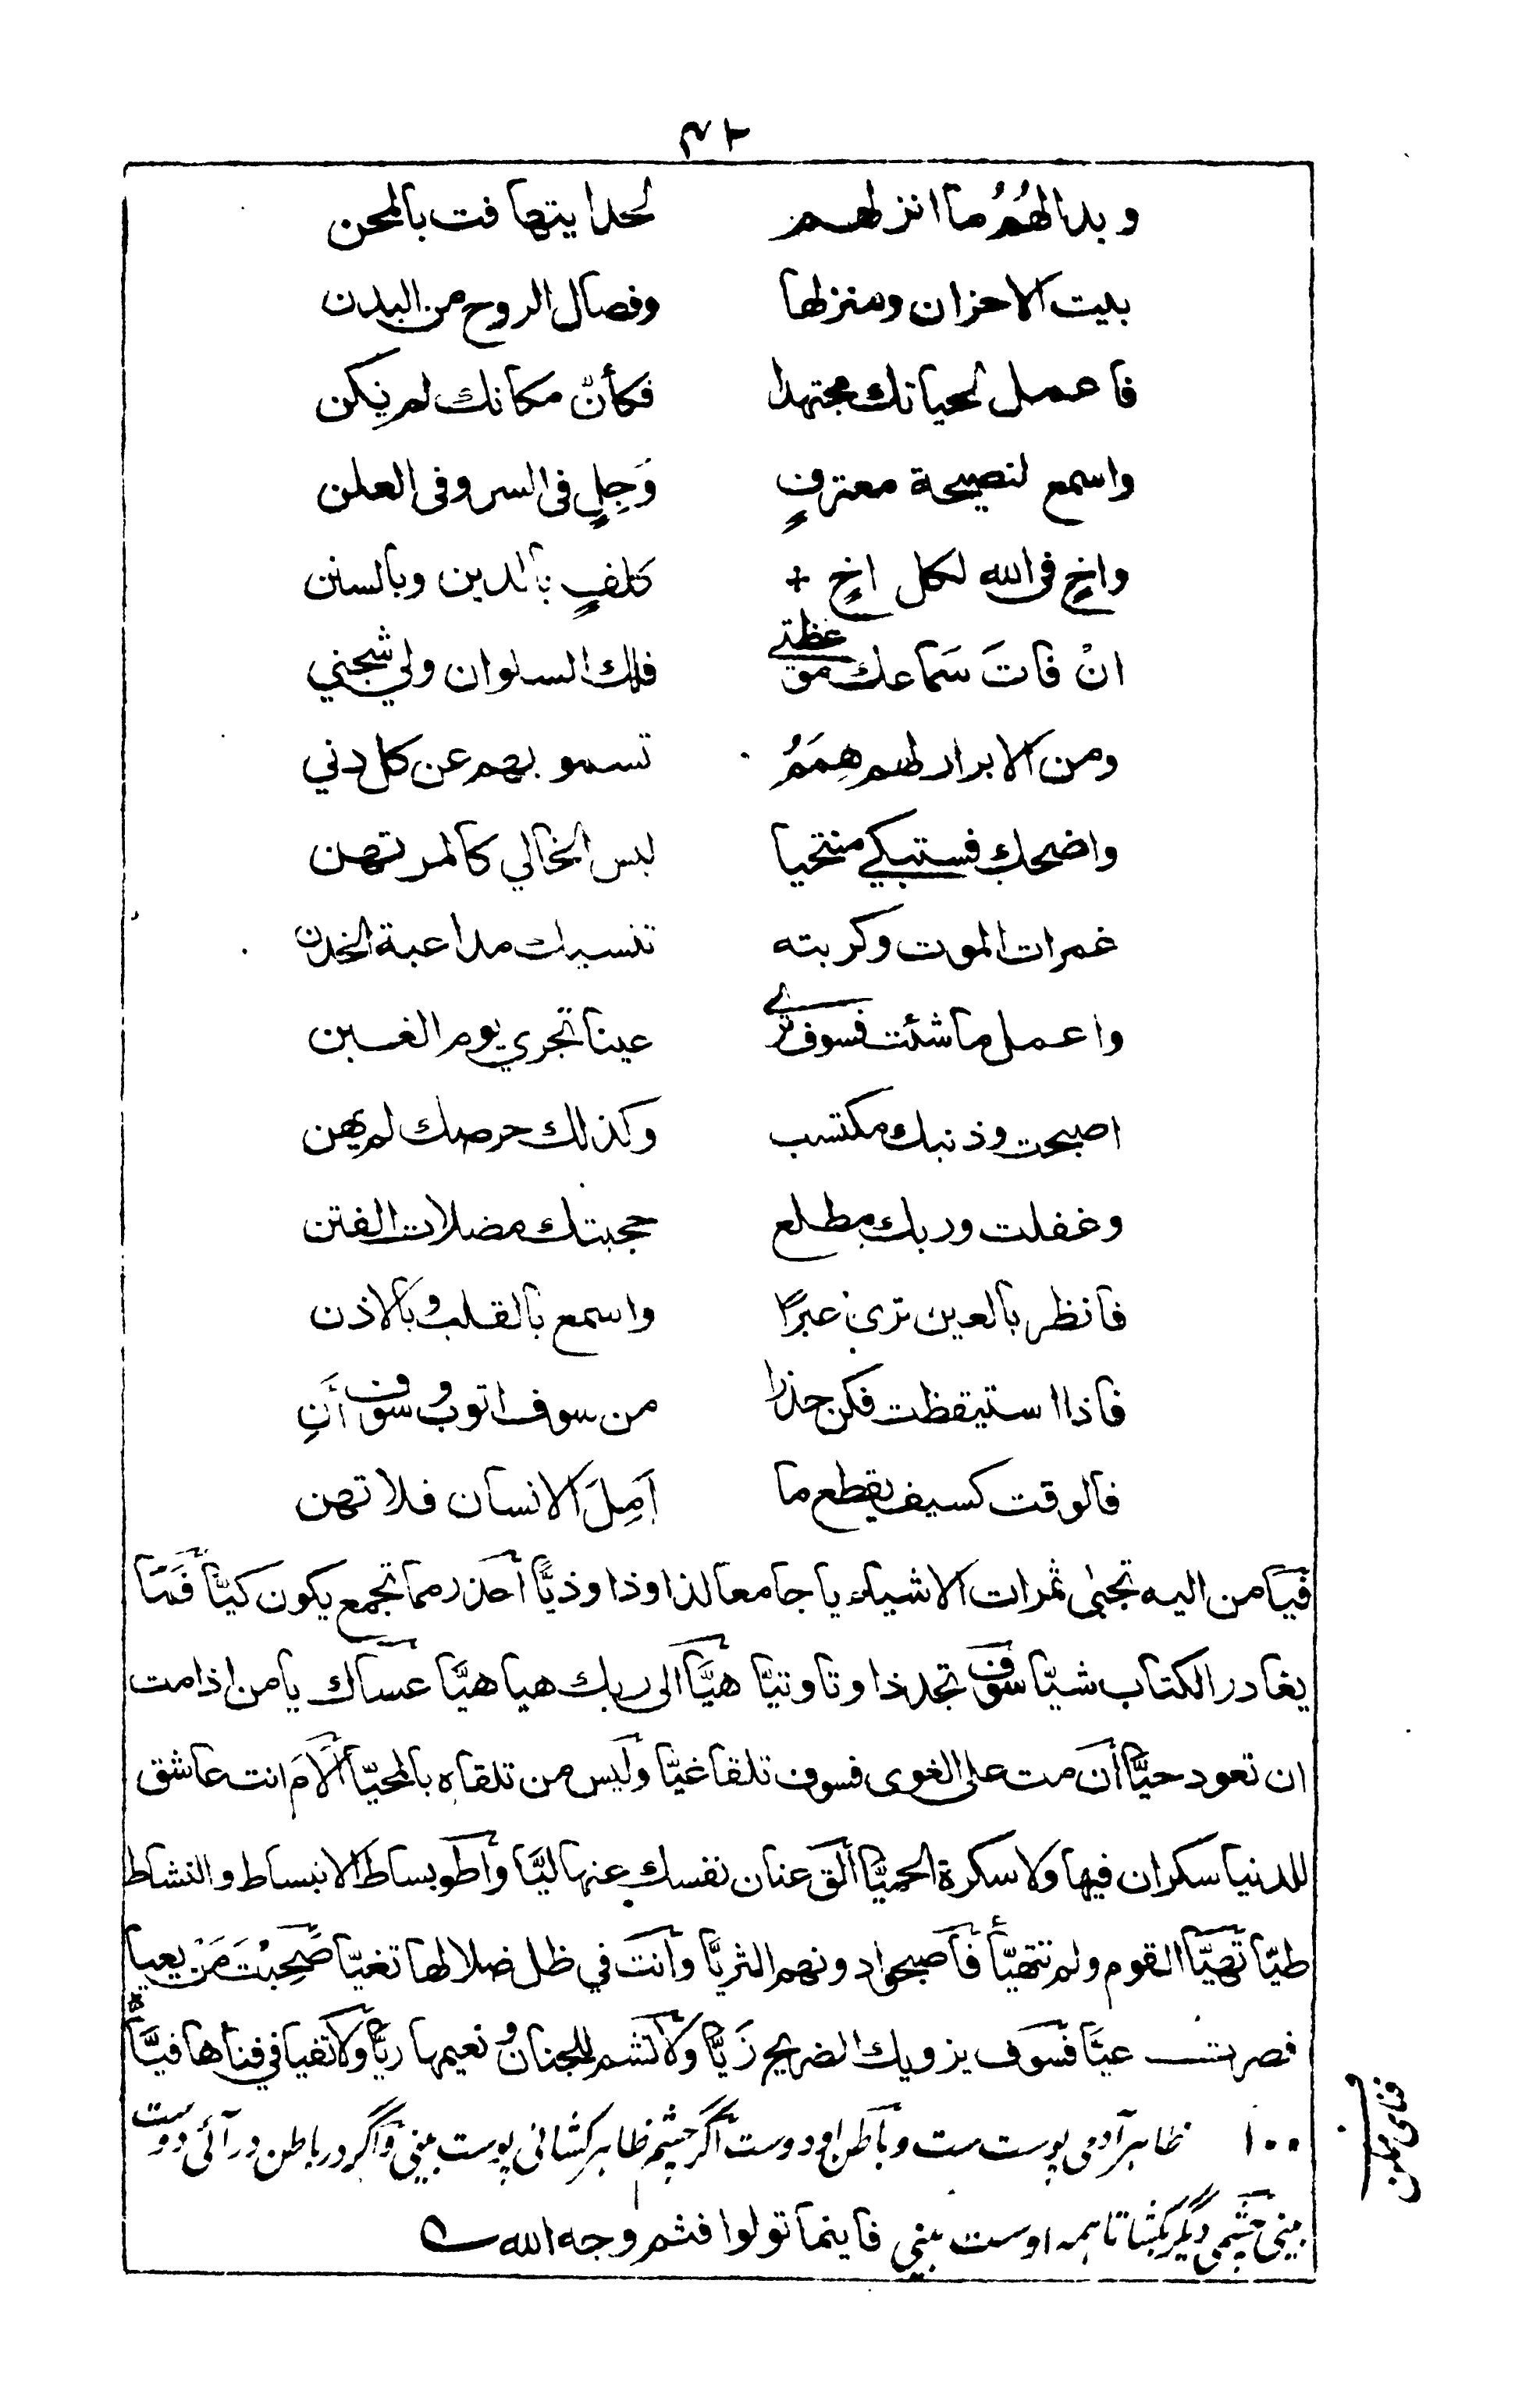 ٤٢
وبدا لهُمُ ما انزلهم لحدا يتهافت بالمحن
بيت الاحزان ومنزلها وفصال الروح من البدن
فاعمل لحياتك مجتهدا فكأنّ مكانك لم يكن
واسمع لنصيحة معترفٍ وَجِلٍ فى السر وفى العلن
واخٍ فى الله لكل اخٍ + كلفٍ بالدين وبالسنن
انْ فاتَ سَماعك موعظتے فلك السلوان ولي شجني
ومن الابرار لهم هِمَمُ تسمو بهم عن كل دني
واضحك فستبكي منتحيا لبس الخالي كالمرتهن
غمرات الموت وكربته تنسيك مداعبة الخدن
واعمل ما شئت فسوف ترے عينا تجري يوم الغبن
اصبحت وذنبك مكتسب وكذلك حرصك لم يهن
وغفلت وربك مطلع حجبتك مضلات الفتن
فانظر بالعين ترى عبرًا واسمع بالقلب وبالاذن
فاذا استيقظت فكن حذرا من سوف اتوب وسوف أنِ
فالوقت كسيف يقطع ما اَمِلَ الانسان فلا تهن
فيا من اليه تجبٰى ثمرات الاشياء يا جامعا لذا وذا وذيًّا احذر مما تجمع يكون كيًّا فما
يغادر الكتاب شيّا سوف تجد ذا وتا وتيّا هيًّا الى ربك هيا هيًّا عساك يا من اذا مت
ان تعود حيًّا أن مت على الغوى فسوف تلقا غيّا وليس من تلقاه بالمحيّا الامَ انت عاشق
للدنيا سكران فيها ولا سكرة الحميًّا الق عنان نفسك عنها ليًّا واطو بساط الانبساط والنشاط
طيّا تهيًّا القوم ولم تتهيّأ فاصبحوا دونهم الثريّا وانت في ظل ضلالها تغيّا صَحِبْتَ مَنْ يعيا
فصرت عيًّا فسوف يزويك الضريح زَيًّا ولا تشم للجنان ونعيمها ريًّا ولا تفيا في فناها فيًّا
١٠٠ ظاهر آدمى پوست ست وباطن او دوست اگر چشم ظاهر كشائى پوست بينى واگر در باطن در آئى دوست
بينى چشمى ديگر بكشا تا همه اوست بينى فاينما تولوا فثم وجه الله